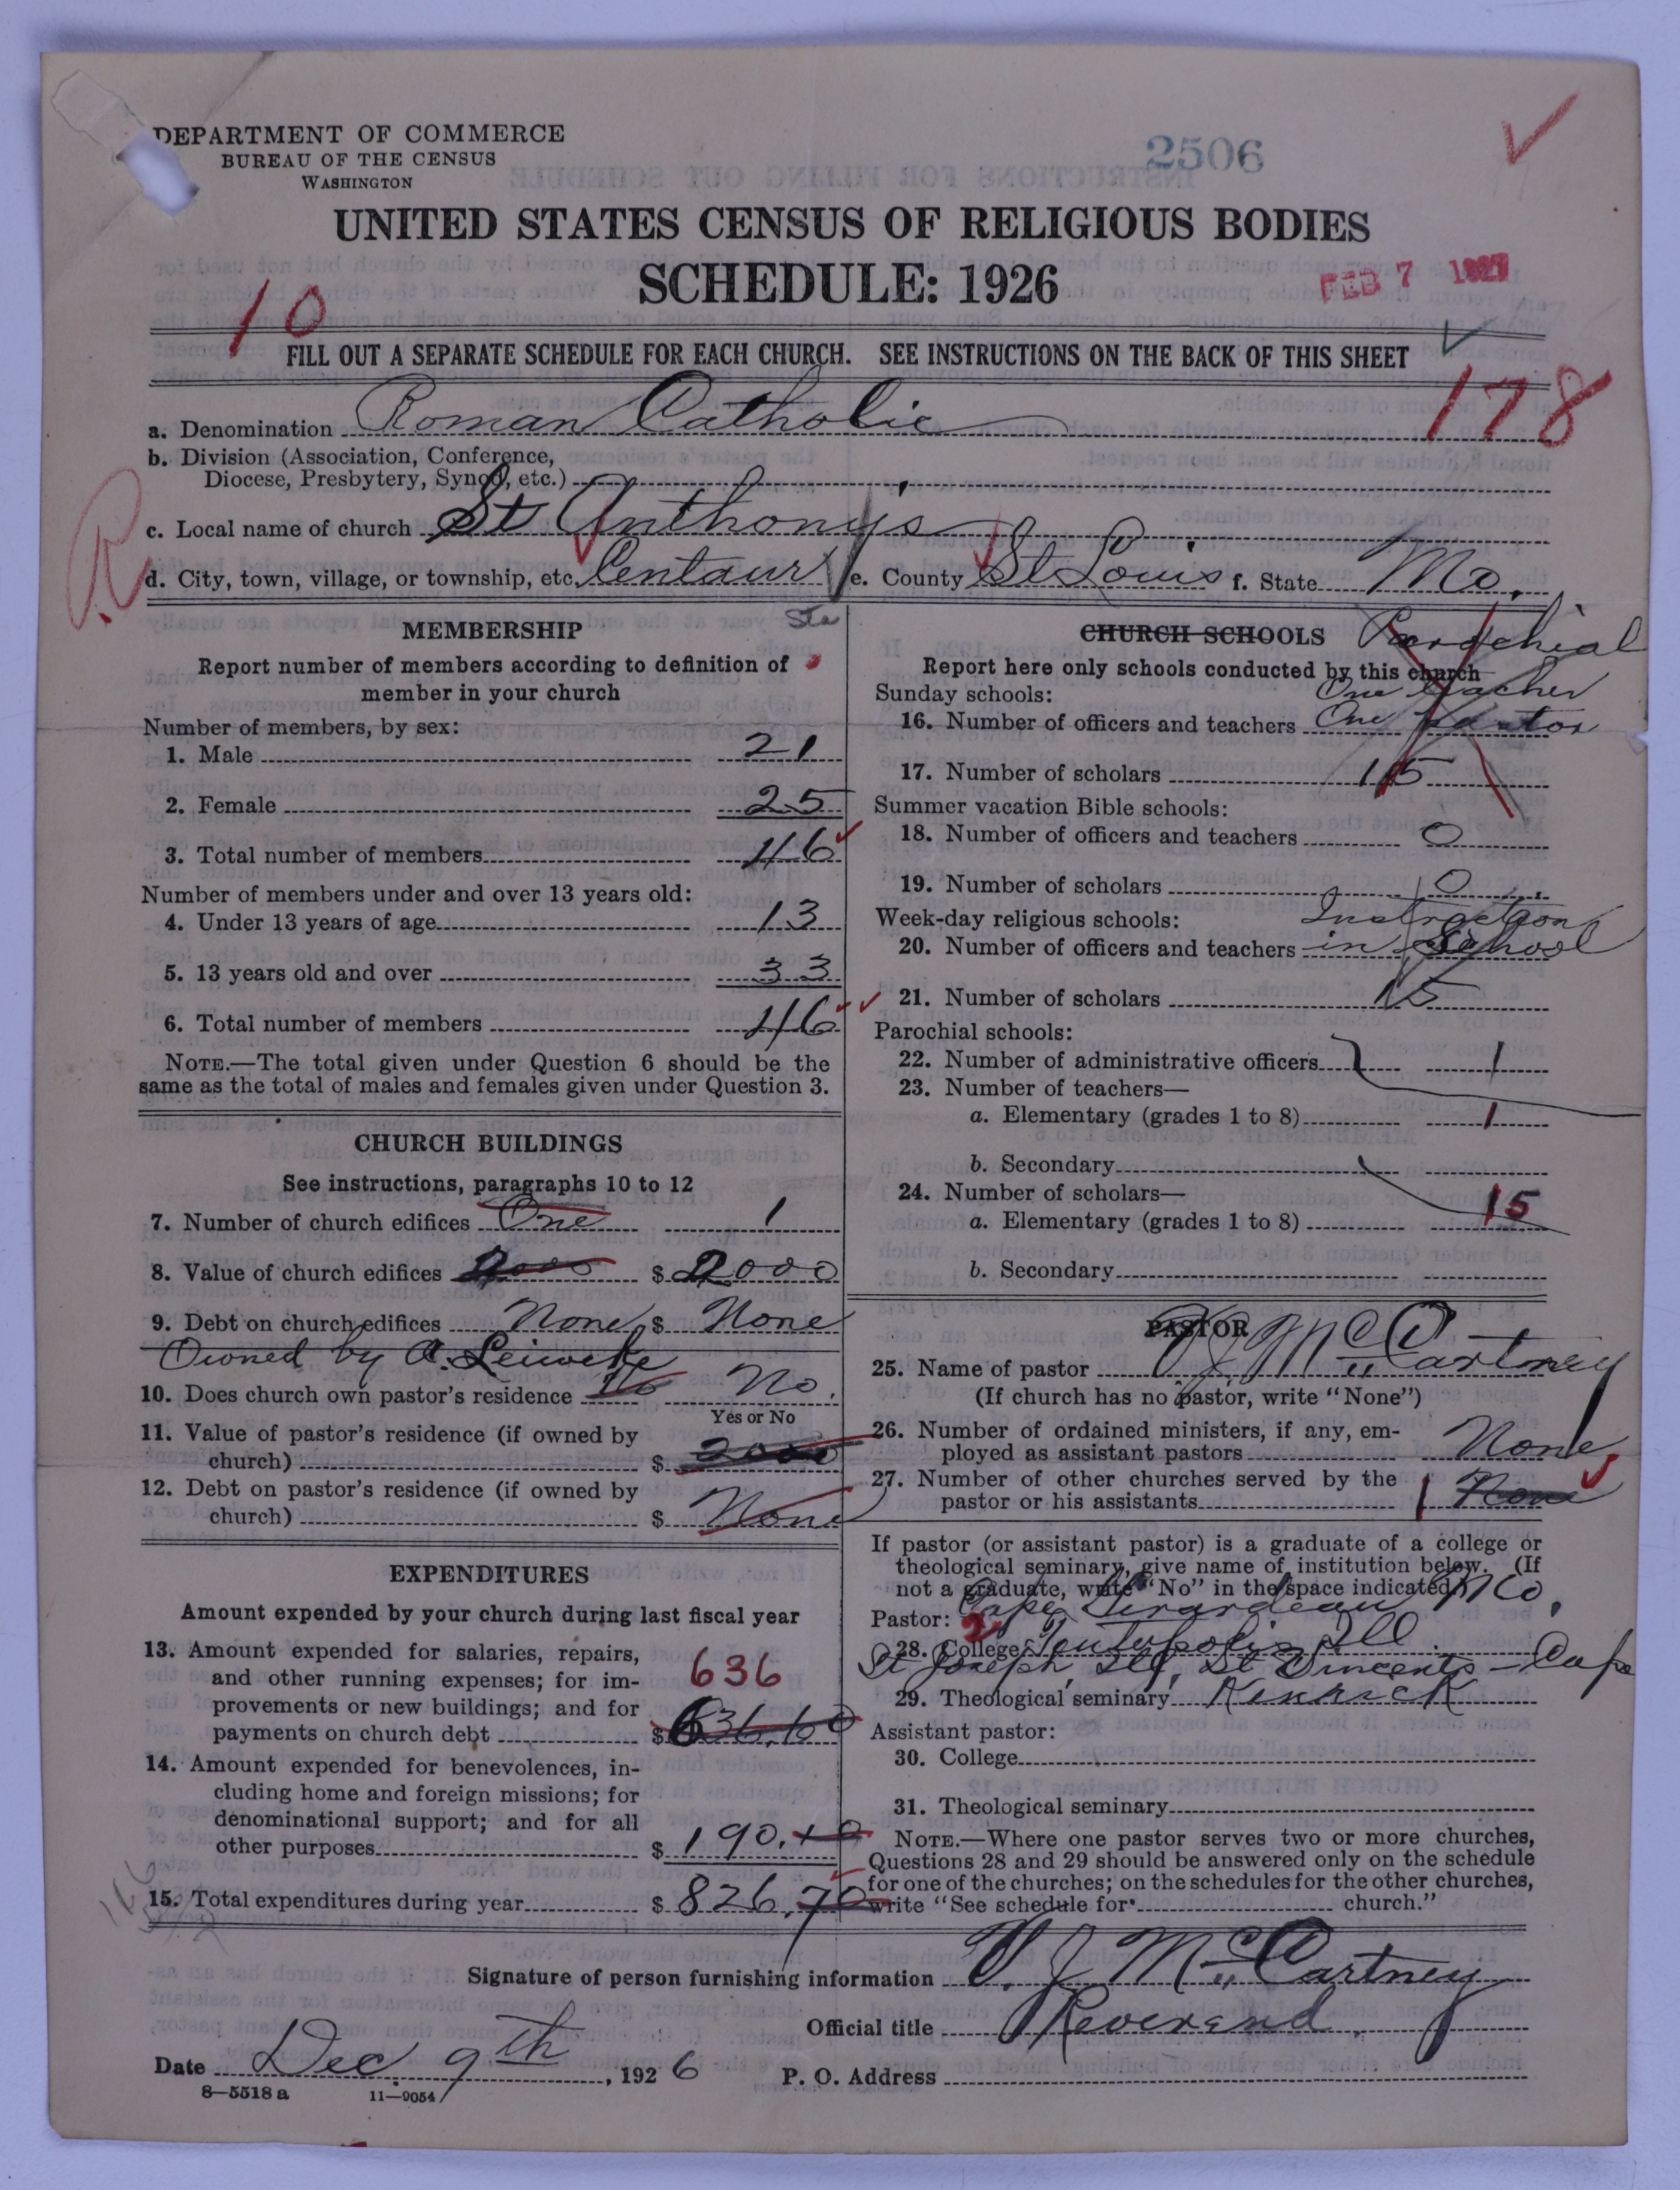 DEPARTMENT OF COMMERCE
BUREAU OF THE CENSUS
WASHINGTON
2506
UNITED STATES CENSUS OF RELIGIOUS BODIES
SCHEDULE: 1926
FEB 7 1927
10
FILL OUT A SEPARATE SCHEDULE FOR EACH CHURCH. SEE INSTRUCTIONS ON THE BACK OF THIS SHEET
178
a. Denomination Roman Catholic
b. Division (Association, Conference,
Diocese, Presbytery, Synod, etc.)
c. Local name of church St Anthony's
R
d. City, town, village, or township, etc. Centaur e. County St Louis f. State Mo.
Sta
MEMBERSHIP
Report number of members according to definition of
member in your church
Number of members, by sex:
1. Male 21
2. Female 25
3. Total number of members 46
Number of members under and over 13 years old:
4. Under 13 years of age 13
5. 13 years old and over 33
6. Total number of members 46
NOTE.—The total given under Question 6 should be the
same as the total of males and females given under Question 3.
CHURCH BUILDINGS
See instructions, paragraphs 10 to 12
7. Number of church edifices One 1
8. Value of church edifices 2000 $ 2000
9. Debt on church edifices None $ None
Owned by A. Leiweke
10. Does church own pastor's residence No No.
Yes or No
11. Value of pastor's residence (if owned by
church) $ 2000
12. Debt on pastor's residence (if owned by
church) $ None
EXPENDITURES
Amount expended by your church during last fiscal year
13. Amount expended for salaries, repairs,
and other running expenses; for im-
provements or new buildings; and for
payments on church debt 636 $ 636.60
14. Amount expended for benevolences, in-
cluding home and foreign missions; for
denominational support; and for all
other purposes $ 190.10
15. Total expenditures during year $ 826.70
CHURCH SCHOOLS Parochial
Report here only schools conducted by this church
Sunday schools: One teacher
16. Number of officers and teachers One pastor
17. Number of scholars 15
Summer vacation Bible schools:
18. Number of officers and teachers 0
19. Number of scholars 0
Week-day religious schools: Instruction
20. Number of officers and teachers in School
21. Number of scholars 15
Parochial schools:
22. Number of administrative officers 1
23. Number of teachers—
a. Elementary (grades 1 to 8) 1
b. Secondary
24. Number of scholars—
a. Elementary (grades 1 to 8) 15
b. Secondary
PASTOR
25. Name of pastor V J McCartney
(If church has no pastor, write "None")
26. Number of ordained ministers, if any, em-
ployed as assistant pastors None
27. Number of other churches served by the
pastor or his assistants 1 None
If pastor (or assistant pastor) is a graduate of a college or
theological seminary, give name of institution below. (If
not a graduate, write "No" in the space indicated)
Cape Girardeau Mo.
Pastor:
28. College Teutopolis Ill.
St Joseph Ill, St Vincents - Cape
29. Theological seminary Kenrick
Assistant pastor:
30. College
31. Theological seminary
NOTE.—Where one pastor serves two or more churches,
Questions 28 and 29 should be answered only on the schedule
for one of the churches; on the schedules for the other churches,
write "See schedule for church."
Signature of person furnishing information V. J McCartney
Official title Reverend.
Date Dec. 9th, 1926 P. O. Address
8—5518 a 11—9054